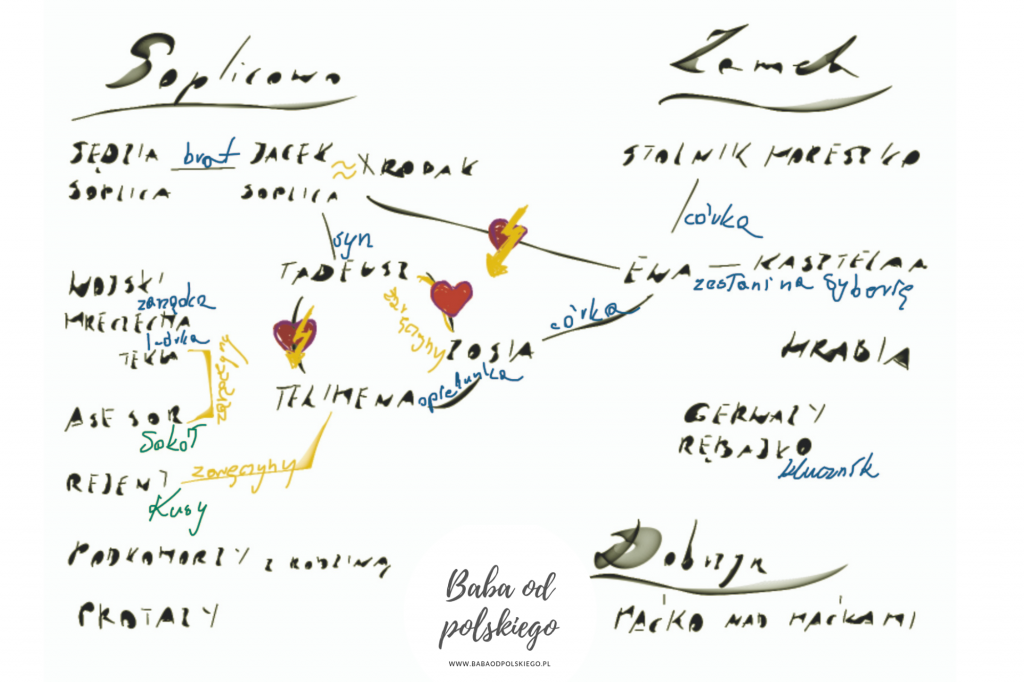 Soplicowo
SĘDZIA brat JACEK ≈ X RODAK
SOPLICA SOPLICA
syn
TADEUSZ
WOJSKI
zarządca
HRECZECHA
córka
TEKLA
zaręczyny
zaręczyny
ZOSIA
TELIMENA opiekunka
ASESOR
Sokół
REJENT zaręczyny
Kusy
PODKOMORZY Z RODZINĄ
PROTAZY
Zamek
STOLNIK HORESZKO
córka
EWA — KASZTELAN
zesłani na Syberię
córka
HRABIA
GERWAZY
RĘBAJŁO
klucznik
Dobrzyn
MAĆKO NAD MAĆKAMI
Baba od
polskiego
WWW.BABAODPOLSKIEGO.PL